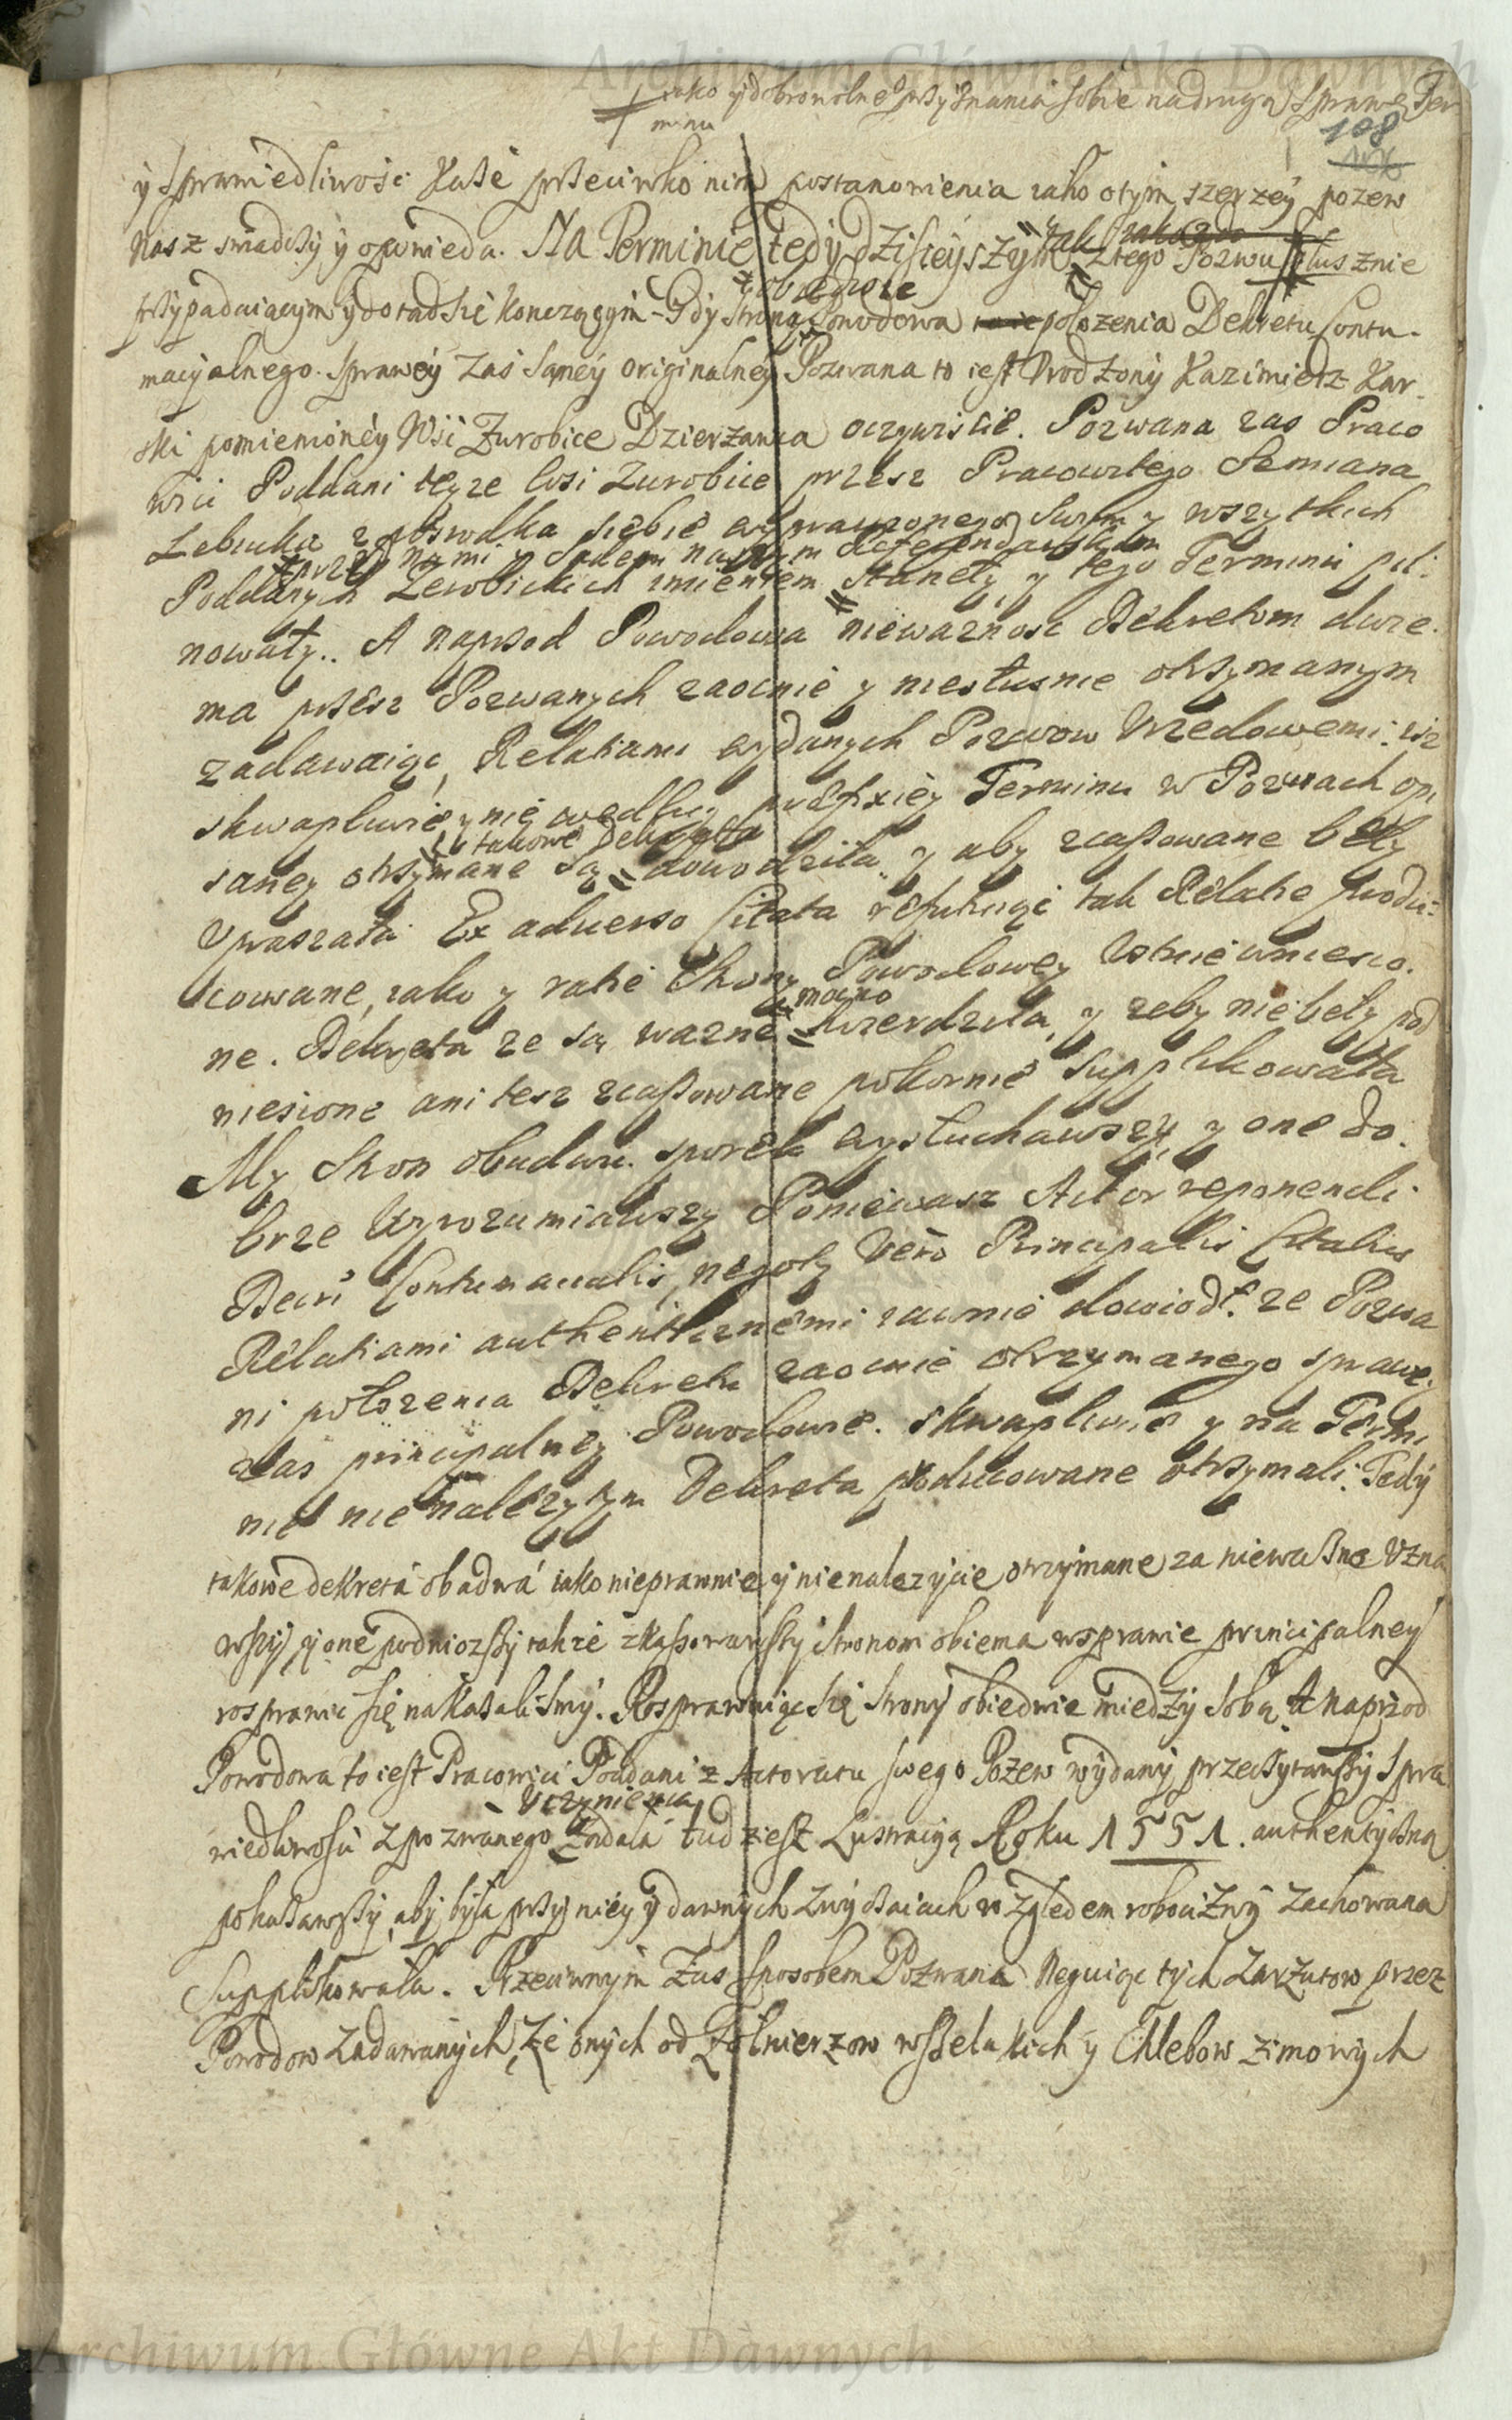 Archiwum Główne Akt Dawnych
jako y dobrowolne przyznania sobie na drugą sprawę Ter
minu
108
y sprawiedliwosci Każe przeciwko nim postanowienia iako o tym szerzey pozew
Nasz swiadczy y opowieda. Na Terminie tedy dzisieyszym tak z tego Pozwu słusznie
przypadaiącym y dotad sie konczącym Gdy strona Powodowa położenia Dekretu Contu-
obiedwie
macyalnego. Sprawey zas samey originalney Pozwana to iest Vrodzony Kazimierz Kar-
ski pomienioney Wsi Zurobice Dzierzawca oczywiscie. Pozwana zas Praco
wici Poddani teyze Wsi Zurobice przesz Pracowitego Semiana
Lebiuka z posrodka siebie wyprawionego swym y wszytkich
przed nami y Sądem naszym Referendarskim
Poddanych Zurobickich imieniem staneły, y tego Terminu pil-
nowały. A naprzod Powodowa niewaznosc Dekretom dwie-
ma przesz Pozwanych zaocznie y niesłusznie otrzymanym
zadawaiąc, Relatiami wydanych Pozwow Vrzedowemi: iz
skwapliwie y nie według prefixiey Terminu w Pozwach opi
takowe Dekreta
saney otrzymane są dowodziła y aby zcassowane beły
Vpraszała. Ex adverso Citata refutuiąc tak Relatie produ-
cowane, iako y racie Strony Powodowey Vstnie wniesio-
mocno
ne. Dekreta ze są wazne twierdziła, y zeby nie beły pod
niesione ani tesz zcassowane pokornie supplikowała
My Stron obudwu sporek wysłuchawszy, y one do-
brze Wyrozumiawszy Poniewasz Actor reponendi
Decri Contumacialis, negoty Vero Principalis Citatus
Relatiami authenticznemi iawnie dowiodł. ze Pozwa
ni położenia Dekretu zaocznie otrzymanego sprawe
zas principalney Powodowie. skwapliwie y na Termi
nie nie nalezytym Dekreta producowane otrzymali. Tedy
takowe dekreta obadwa iako nieprawnie y nienalezycie otrzymane za niewazne Vzna
wszy, y one podniozszy takze zkassowawszy Stronom obiema w sprawie principalney
rosprawic się nakazalismy. Rosprawuiąc się strony obiedwie miedzy sobą. A naprzod
Powodowa to iest Pracowici Poddani z Actoratu swego Pozew wydany przeczytawszy Spra
Vczynienia
wiedliwosci z pozwanego żądała tudziesz Lustracyą Roku 1551. authentyczną
pokazawszy, aby była przy niey y dawnych zwyczaiach względem robocizny zachowana
Supplikowała. Przeciwnym zas sposobem Pozwana Neguiąc tych zarzutow przez
Powodow zadawanych, że onych od Zołnierzow wszelakich y Chlebow zimowych
Archiwum Główne Akt Dawnych